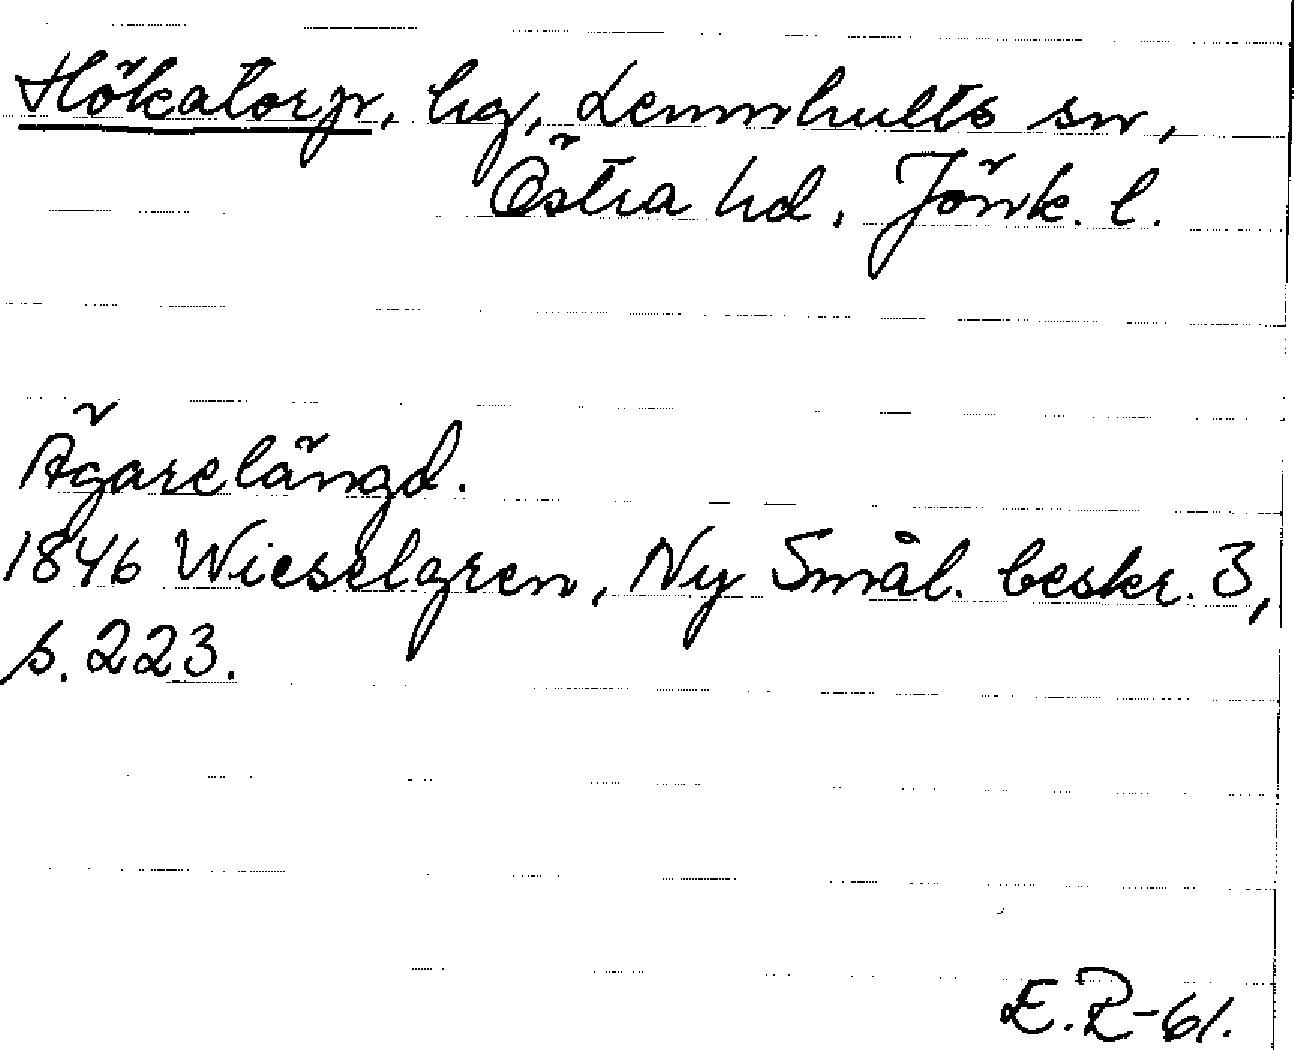 Hökatorp, hg, Lemnhults sn,
Östra hd, Jönk. l.
Ägarelängd.
1846 Wieselgren, Ny Smål. beskr. 3,
s. 223.
E.R-61.